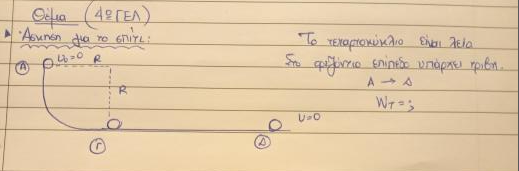 Θέμα (4ο ΓΕΛ)
Άσκηση για το σπίτι:
Το τεταρτοκύκλιο είναι λείο
Στο οριζόντιο επίπεδο υπάρχει τριβή.
A → Δ
Wτ = ;
A
υ0=0
R
R
υ=0
Γ
Δ